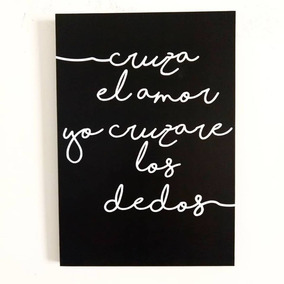 cruza
el amor
yo cruzare
los
dedos